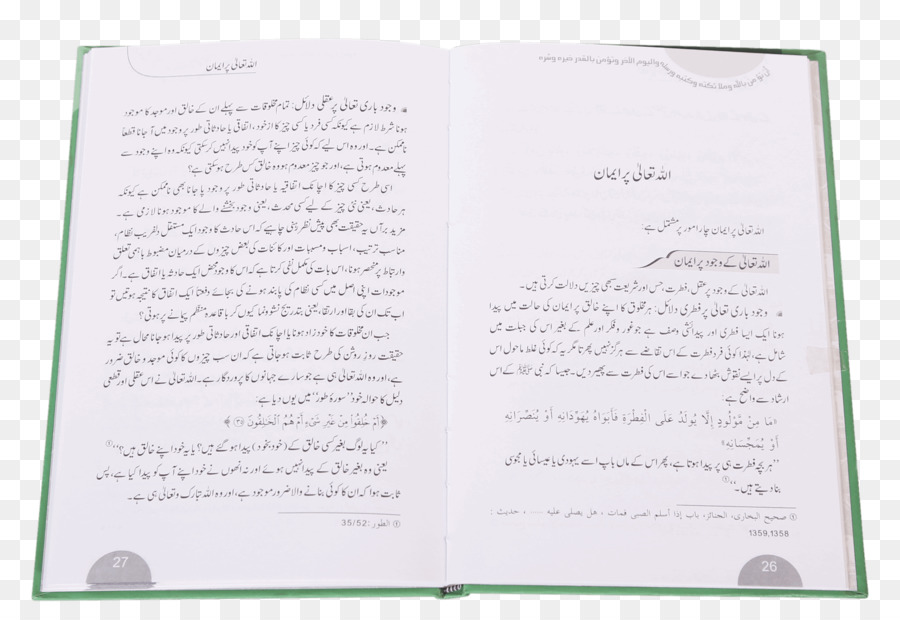 أن تؤمن بالله وملائكته وكتبه ورسله واليوم الآخر وتؤمن بالقدر خيره وشره
اللہ تعالیٰ پر ایمان
اللہ تعالیٰ پر ایمان چار امور پر مشتمل ہے:
اللہ تعالیٰ کے وجود پر ایمان
اللہ تعالیٰ کے وجود پر عقل، فطرت، حِس اور شریعت سبھی چیزیں دلالت کرتی ہیں۔
وجود باری تعالیٰ پر فطری دلائل: ہر مخلوق کا اپنے خالق پر ایمان کی حالت میں پیدا
ہونا ایک ایسا فطری اور پیدائشی وصف ہے جو غور و فکر اور علم کے بغیر اس کی جبلت میں
شامل ہے، لہٰذا کوئی فرد فطرت کے اس تقاضے سے ہرگز نہیں پھرتا مگر یہ کہ کوئی غلط ماحول اس
کے دل پر ایسے نقوش بٹھا دے جو اسے اس کی فطرت سے پھیر دیں۔ جیسا کہ نبی ﷺ کے اس
ارشاد سے واضح ہے:
«مَا مِنْ مَوْلُودٍ إِلَّا يُولَدُ عَلَى الْفِطْرَةِ فَأَبَوَاهُ يُهَوِّدَانِهِ أَوْ يُنَصِّرَانِهِ
أَوْ يُمَجِّسَانِهِ»
’’ہر بچہ فطرت ہی پر پیدا ہوتا ہے، پھر اس کے ماں باپ اسے یہودی یا عیسائی یا مجوسی
بنا دیتے ہیں۔‘‘①
① صحيح البخاري، الجنائز، باب إذا أسلم الصبي فمات ، هل يصلى عليه ..... ، حديث :
1359,1358
26
اللہ تعالیٰ پر ایمان
وجود باری تعالیٰ پر عقلی دلائل: تمام مخلوقات سے پہلے ان کے خالق اور موجد کا موجود
ہونا شرط لازم ہے کیونکہ کسی فرد یا کسی چیز کا از خود، اتفاقی یا حادثاتی طور پر وجود میں آ جانا قطعاً
ناممکن ہے۔ اور وہ اس لیے کہ کوئی چیز اپنے آپ کو خود پیدا نہیں کر سکتی کیونکہ وہ اپنے وجود سے
پہلے معدوم ہوتی ہے، اور جو چیز معدوم ہو وہ خالق کس طرح ہو سکتی ہے؟
اسی طرح کسی چیز کا اچانک اتفاقیہ یا حادثاتی طور پر وجود پا جانا بھی ناممکن ہے کیونکہ
ہر حادث، یعنی نئی چیز کے لیے کسی محدث، یعنی وجود بخشنے والے کا موجود ہونا لازمی ہے۔
مزید برآں یہ حقیقت بھی پیش نظر رہنی چاہیے کہ اس حادث کا وجود ایک مستقل دلفریب نظام،
مناسب ترتیب، اسباب و مسببات اور کائنات کی بعض چیزوں کے درمیان مضبوط باہمی تعلق
و ارتباط پر منحصر ہونا، اس بات کی مکمل نفی کرتا ہے کہ اس کا وجود محض ایک حادثہ یا اتفاق ہے۔ اگر
موجودات اپنی اصل میں کسی نظام کی پابند ہونے کی بجائے دفعتاً ایک اتفاق کا نتیجہ ہوتیں تو
اب تک ان کی بقا اور ارتقا، یعنی بتدریج نشوونما کیوں کر باقاعدہ منظم پیمانے پر ہوتی؟
جب ان مخلوقات کا خود زاد ہونا یا اچانک اتفاقی اور حادثاتی طور پر پیدا ہو جانا محال ہے تو یہ
حقیقت روزِ روشن کی طرح ثابت ہو جاتی ہے کہ ان سب چیزوں کا کوئی موجد و خالق ضرور
ہے، اور وہ اللہ تعالیٰ ہی ہے جو سارے جہانوں کا پروردگار ہے۔ اللہ تعالیٰ نے اس عقلی اور قطعی
دلیل کا حوالہ خود ’’سورۂ طور‘‘ میں یوں دیا ہے:
﴿أَمْ خُلِقُوا مِنْ غَيْرِ شَيْءٍ أَمْ هُمُ الْخَالِقُونَ ﴾
’’کیا یہ لوگ بغیر کسی خالق کے (خود بخود) پیدا ہو گئے ہیں؟ یا یہ خود اپنے خالق ہیں؟‘‘①
یعنی وہ بغیر خالق کے پیدا نہیں ہوئے اور نہ انھوں نے خود اپنے آپ کو پیدا کیا ہے، پس
ثابت ہوا کہ ان کا کوئی بنانے والا ضرور موجود ہے، اور وہ اللہ تبارک و تعالیٰ ہی ہے۔
① الطور :35/52
27